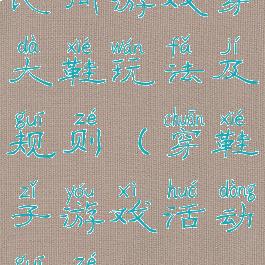 游戏穿
dà xié wán fǎ jí
大鞋玩法及
guī zé chuān xié
规则（穿鞋
zǐ yóu xì huó dòng
子游戏活动
guī zé